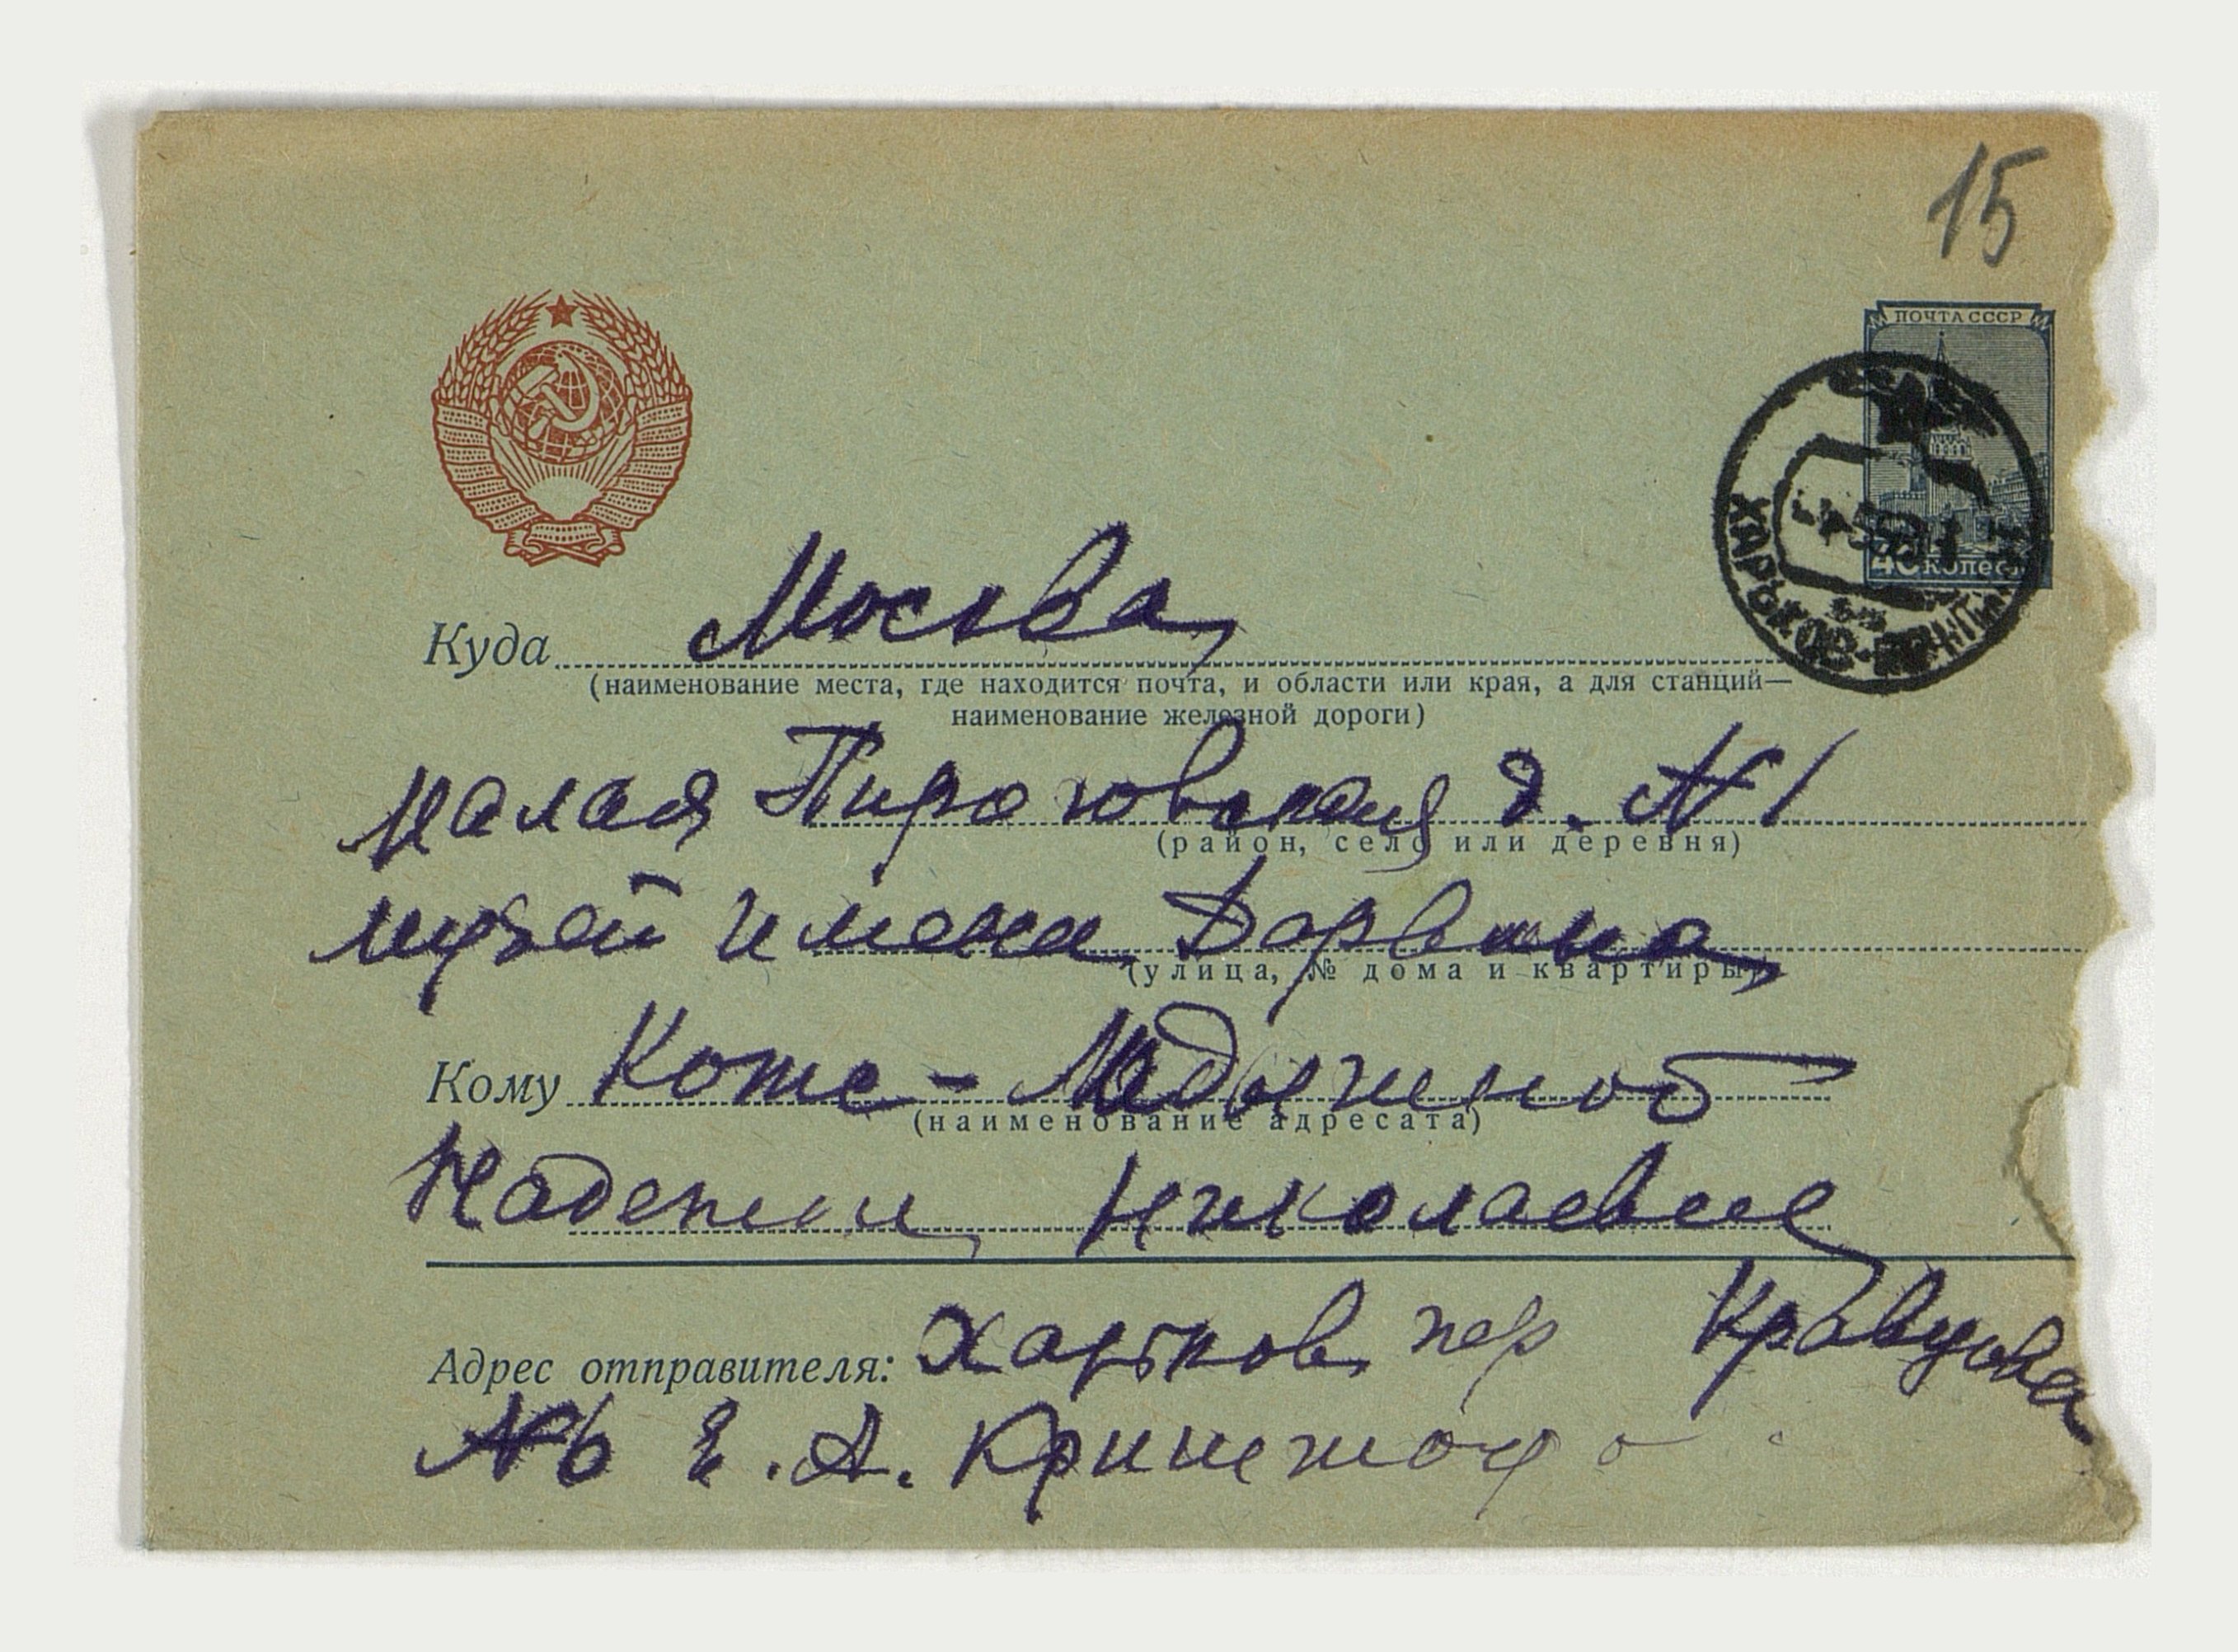 15
ПОЧТА СССР
40 копеек
ХАРЬКОВ
Куда Москва
(наименование места, где находится почта, и области или края, а для станций—
наименование железной дороги)
Малая Пироговская д. № 1
(район, село или деревня)
музей имени Дарвина
(улица, № дома и квартиры)
Кому Котс-Ладыженой
(наименование адресата)
Надежди Николаевне
Адрес отправителя: Харьков пер Кравцова
№ 6 Е. А.